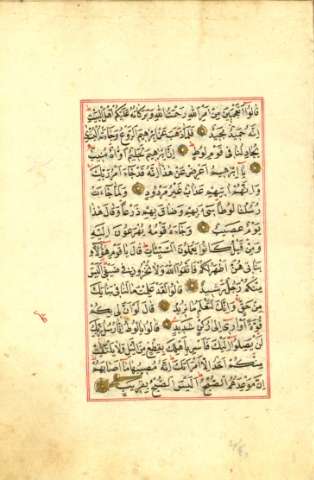 قالوا اتعجبين من امر الله رحمت الله وبركاته عليكم اهل البيت
انه حميد مجيد فلما ذهب عن ابرهيم الروع وجاءته البشرى
يجادلنا في قوم لوط ان ابرهيم لحليم اواه منيب
يا ابرهيم اعرض عن هذا انه قد جاء امر ربك
وانهم اتيهم عذاب غير مردود ولما جاءت
رسلنا لوطا سئ بهم وضاق بهم ذرعا وقال هذا
يوم عصيب وجاءه قومه يهرعون اليه
ومن قبل كانوا يعملون السيئات قال يا قوم هؤلاء
بناتي هن اطهر لكم فاتقوا الله ولا تخزون في ضيفي اليس
منكم رجل رشيد قالوا لقد علمت ما لنا في بناتك
من حق وانك لتعلم ما نريد قال لو ان لي بكم
قوة او اوي الى ركن شديد قالوا يا لوط انا رسل ربك
لن يصلوا اليك فاسر باهلك بقطع من الليل ولا يلتفت
منكم احد الا امراتك انه مصيبها ما اصابهم
ان موعدهم الصبح اليس الصبح بقريب